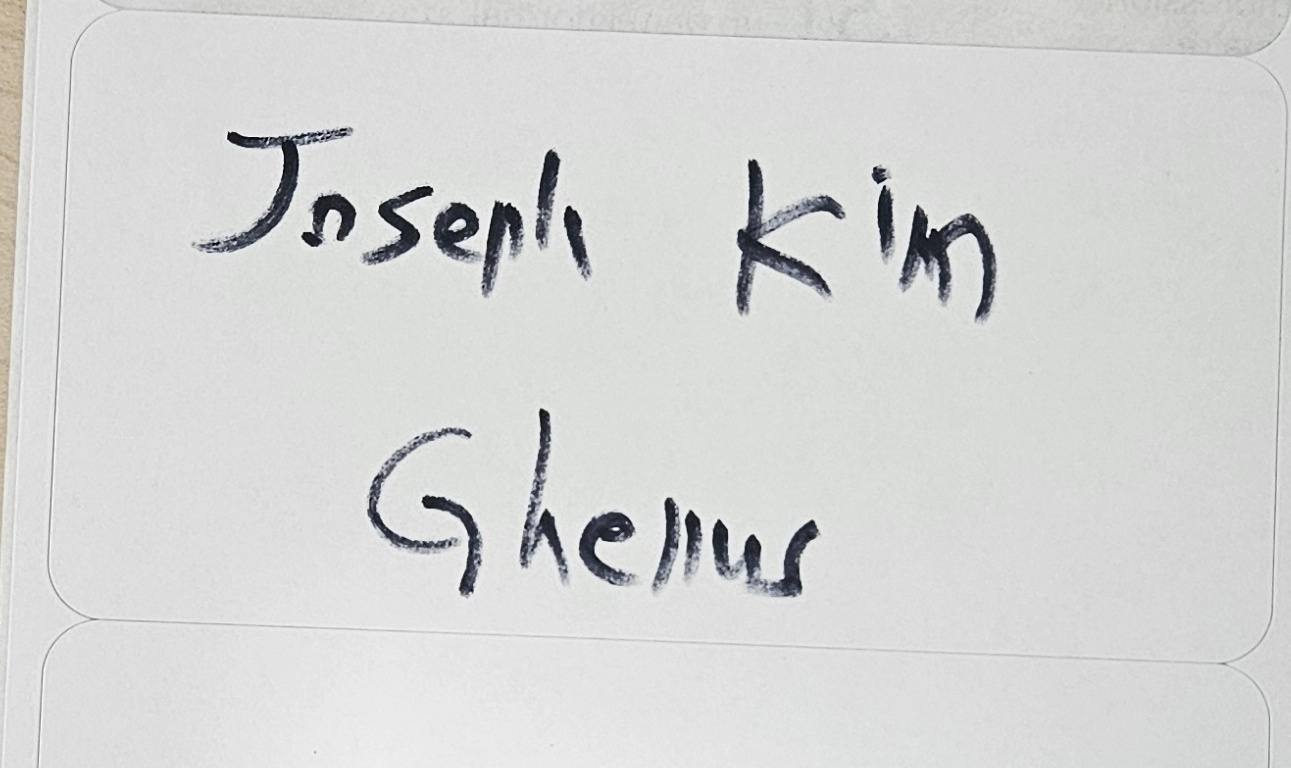 Joseph Kim
Ghellus